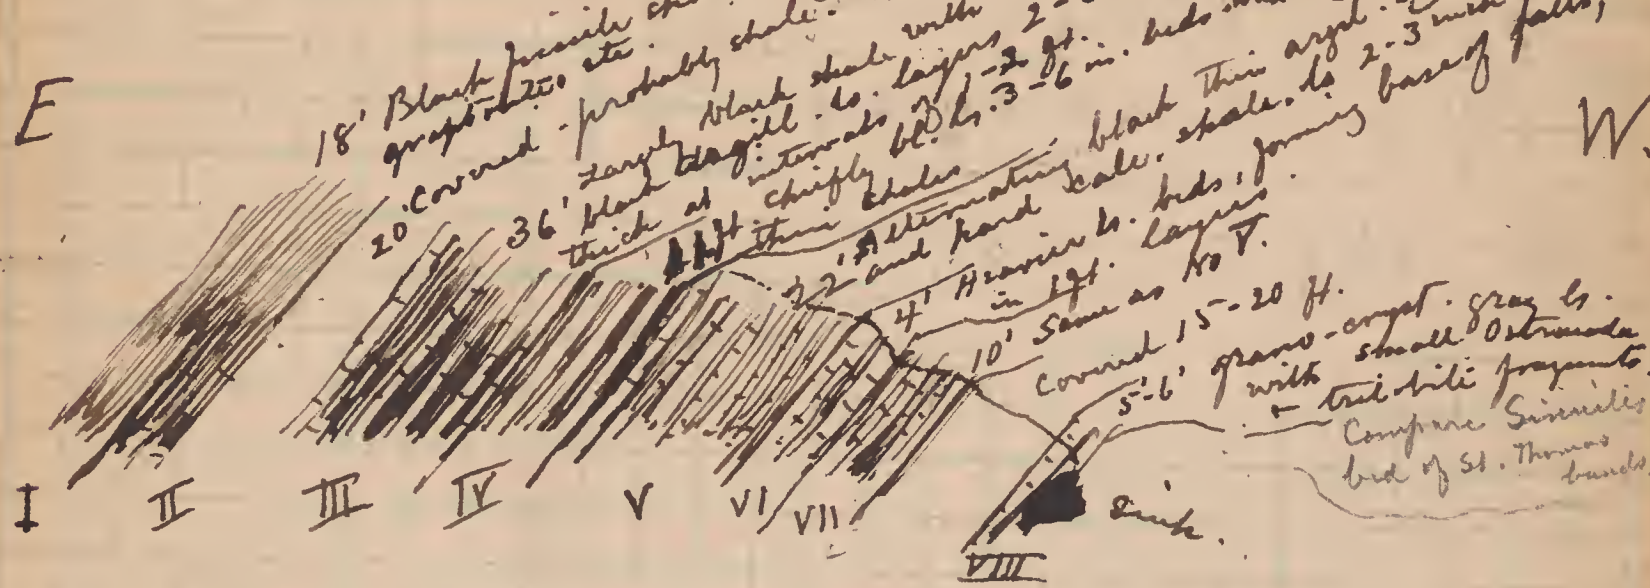 E
W.
18' Black fissile
graptolites etc.
20 Covered - probably shale.
36' Largely black shale with
black argill. ls. layers 2-
thick at intervals of 1-2 ft.
ft. chiefly bl. ls. 3-6 in. beds
thin shales
22' Alternating black thin argil.
and hard calc. shale. ls 2-3 inch
4' Heavier ls. beds, forming base of falls,
in 1 ft. layers.
10' Same as No V.
Covered 15-20 ft.
5-6' grano-cryst. gray ls.
with small Ostracoda
+ trilobite fragments.
Compare
bed of St. Thomas
I II III IV V VI VII
VIII
sink.